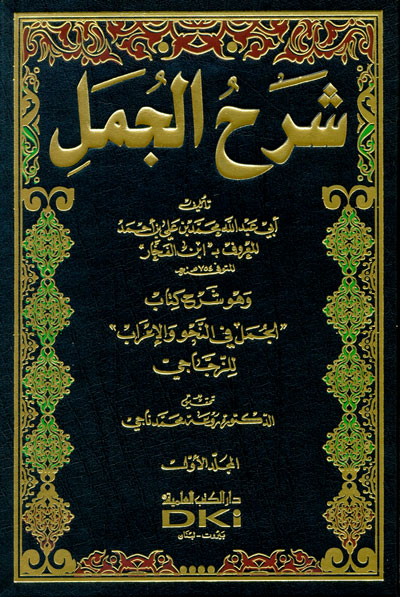 شَرْحُ الجُمَلِ
تأليف
أبي عبد الله محمد بن علي بن أحمد
المعروف بـ ابن الفخار
المتوفى ٧٥٤ هـ
وهو شرح كتاب
"الجمل في النحو والإعراب"
للزجاجي
الدكتورة روعة محمد ناجي
المجلد الأول
دار الكتب العلمية
DKi
بيروت - لبنان